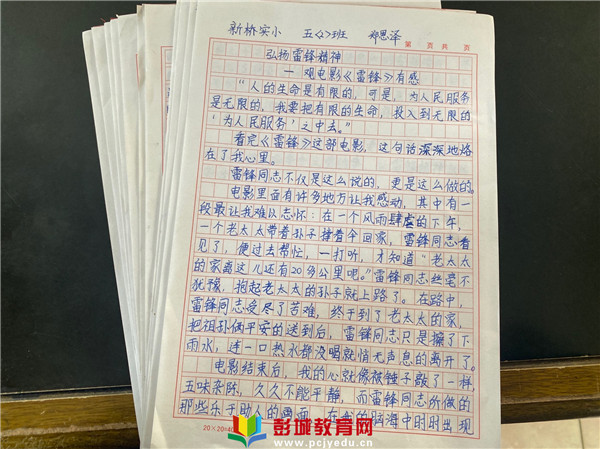 新桥实小 五<2>班 郑思泽
第 页共 页
弘扬雷锋精神
—观电影《雷锋》有感
“人的生命是有限的，可是，为人民服务
是无限的，我要把有限的生命，投入到无限的
‘为人民服务’之中去。”
看完《雷锋》这部电影，这句话深深地烙
在了我心里。
雷锋同志不仅是这么说的，更是这么做的。
电影里面有许多地方让我感动，其中有一
段最让我难以忘怀：在一个风雨肆虐的下午，
一个老太太带着孙子撑着伞回家，雷锋同志看
见了，便过去帮忙，一打听，才知道“老太太
的家离这儿还有20多公里吧。”雷锋同志丝毫不
犹豫，抱起老太太的孙子就上路了。在路中，
雷锋同志受尽了苦难，终于到了老太太的家，
把祖孙俩平安的送到后，雷锋同志只是擦了下
雨水，连一口热水都没喝就悄无声息的离开了。
电影结束后，我的心就像被锤子敲了一样，
五味杂陈，久久不能平静，而雷锋同志所做的
那些乐于助人的画面，在我的脑海中时时出现
20×20=40
彭城教育网
www.pcjyedu.cn